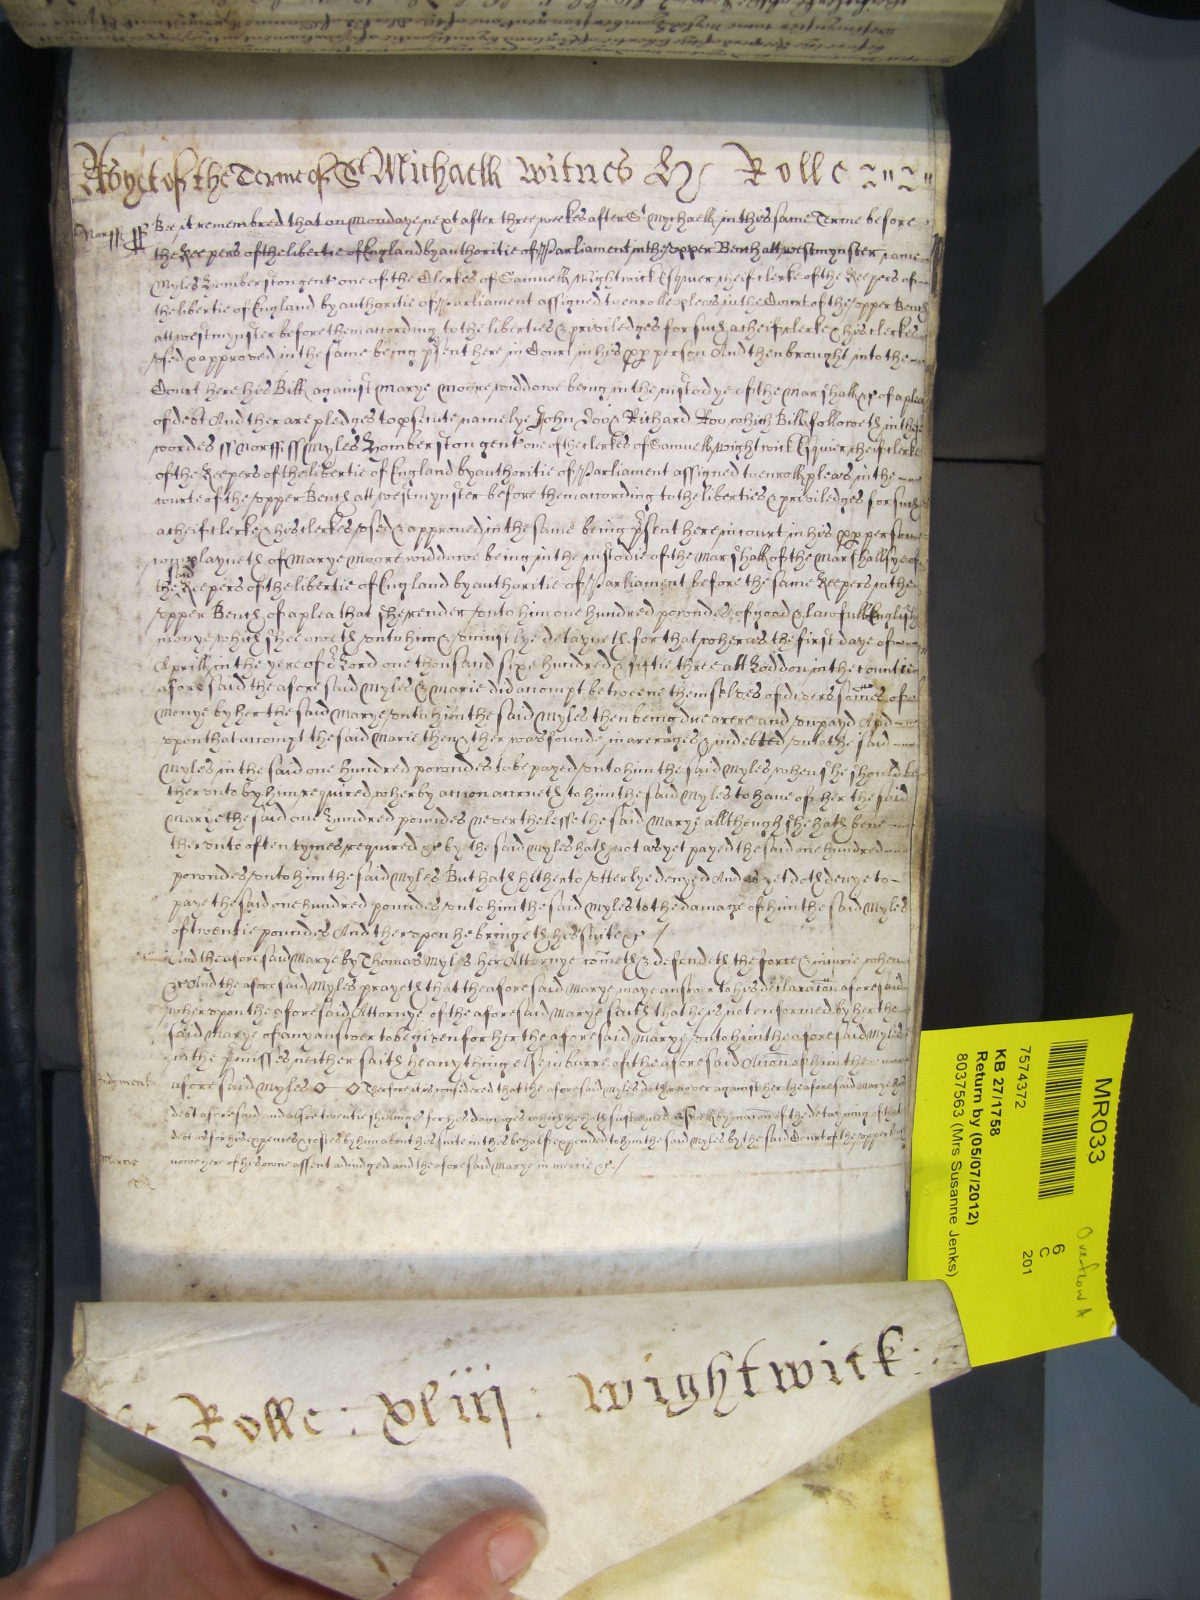 As yet of the Terme of St Michaell witnes H Rolle
Norff ss Be it remembred that on Mondaye next after three weekes after St Mychaell in this same Terme before
the Keepers of the libertie of England by authoritie of Parliament in the upper Bench att westmynster came
Myles Homberston gent one of the Clerkes of Samuell Wightwick Esquier cheif clerke of the Keepers of
the libertie of England by authoritie of Parliament assigned to enroll pleas in the Court of the upper Bench
att westmynster before them according to the liberties & priviledges for such a cheif clerke & his clerkes
used & approved in the same being psent here in Court in his pp person And then brought into the
Court here his Bill against Marye Moore widdowe being in the custodye of the Marshall &c of a plea
of debt And there are pledges to psecute namelye John Doo & Richard Roo which Bill followeth in these
wordes ss Norff ss Myles Homberston gent one of the clerkes of Samuell Wightwick Esquier cheif clerke
of the Keepers of the libertie of England by authoritie of Parliament assigned to enroll pleas in the
courte of the upper Bench att westmynster before them according to the liberties & priviledges for such
a cheif clerke & his clerkes used & approved in the same being psent here in court in his pp person
complayneth of Marye Moore widdowe being in the custodie of the Marshall of the Marshallsye of
the said Keepers of the libertie of England by authoritie of Parliament before the same Keepers in the
upper Bench of a plea that she render unto him one hundred powndes of good & lawfull English
monye which shee oweth unto him & uniustlye detayneth for that wheras the first daye of
Aprill in the yere of or Lord one thousand sixe hundred & fiftie three att Loddon in the countie
aforesaid the aforesaid Myles & Marie did accompt betweene themselves of divers somes of
monye by her the said Marye unto him the said Myles then being due arere and unpayd And
upon that accompt the said Marie then & ther was founde in arerages & indebted unto the said
Myles in the said one hundred powndes to be payed unto him the said Myles when she should be
therunto by him required wherby accion accrueth to him the said Myles to have of her the said
Marye the said one hundred powndes neverthelesse the said Marye allthough she hath bene
therunto often tymes required &c by the said Myles hath not as yet payed the said one hundred
powndes unto him the said Myles But hath hetherto utterlye denyed And as yet doth denye to
paye the said one hundred powndes unto him the said Myles to the damage of him the said Myles
of twentie powndes And therupon he bringeth his suite &c
And the aforesaid Marye by Thomas Myles her Attornye cometh & defendeth the force & iniurie when
&c And the aforesaid Myles prayeth that the aforesaid Marye maye answer to his declaracon aforesaid
wherupon the aforesaid Attornye of the aforesaid Marye saith that he is not enformed by her the
said Marye of any answer to be given for her the aforesaid Marye unto him the aforesaid Myles
in the pmisses neither saith he any thing else in barre of the aforesaid Accion of him the
Judgment aforesaid Myles Therfore it is considered that the aforesaid Myles do recover against her the aforesaid Marye his
debt aforesaid and allso twentie shillinges for his damages which he hath susteyned aswell by reason of the detayning of that
debt as for his expences & costes by him about his suite in this behalf expended to him the said Myles by the said Court of the upper
nowe here of his owne assent adiudged and the aforesaid Marye in mercie &c
Mercie
Rolle : xliiij : Wightwick :
MR033
7574372
KB 27/1758
Return by (05/07/2012)
8037563 (Mrs Susanne Jenks)
6
C
201
Overflow A